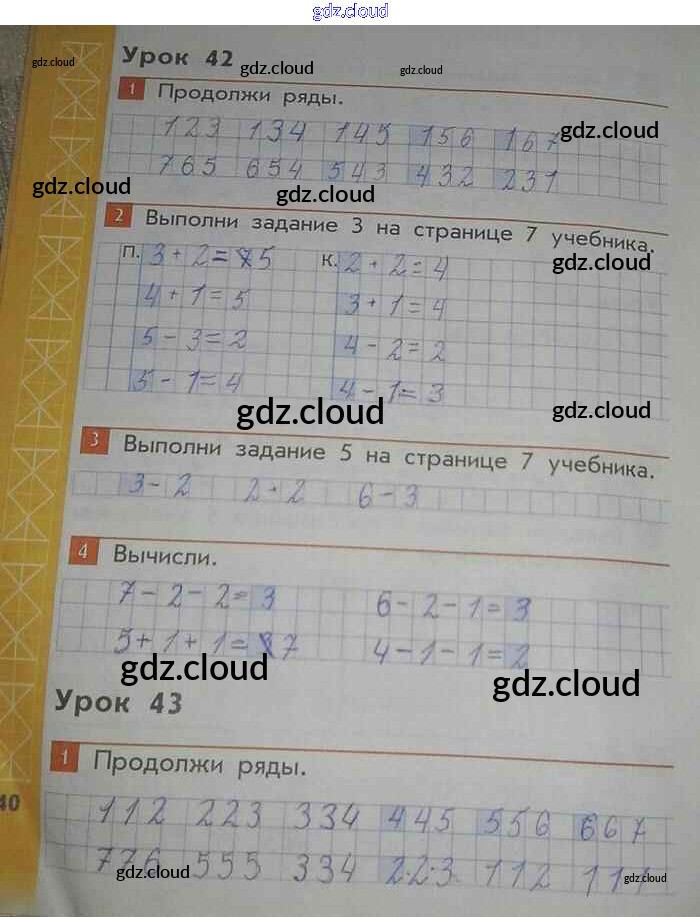 gdz.cloud
Урок 42
gdz.cloud gdz.cloud gdz.cloud
1 Продолжи ряды.
123 134 145 156 167
gdz.cloud
765 654 543 432 231
gdz.cloud gdz.cloud
2 Выполни задание 3 на странице 7 учебника.
П. 3+2=5 К. 2+2=4
gdz.cloud
4+1=5 3+1=4
5-3=2 4-2=2
5-1=4 4-1=3
gdz.cloud gdz.cloud
3 Выполни задание 5 на странице 7 учебника.
3-2 2+2 6-3
4 Вычисли.
7-2-2=3 6-2-1=3
5+1+1=7 4-1-1=2
gdz.cloud gdz.cloud
Урок 43
1 Продолжи ряды.
40
112 223 334 445 556 667
776 555 334 223 112 111
gdz.cloud gdz.cloud gdz.cloud